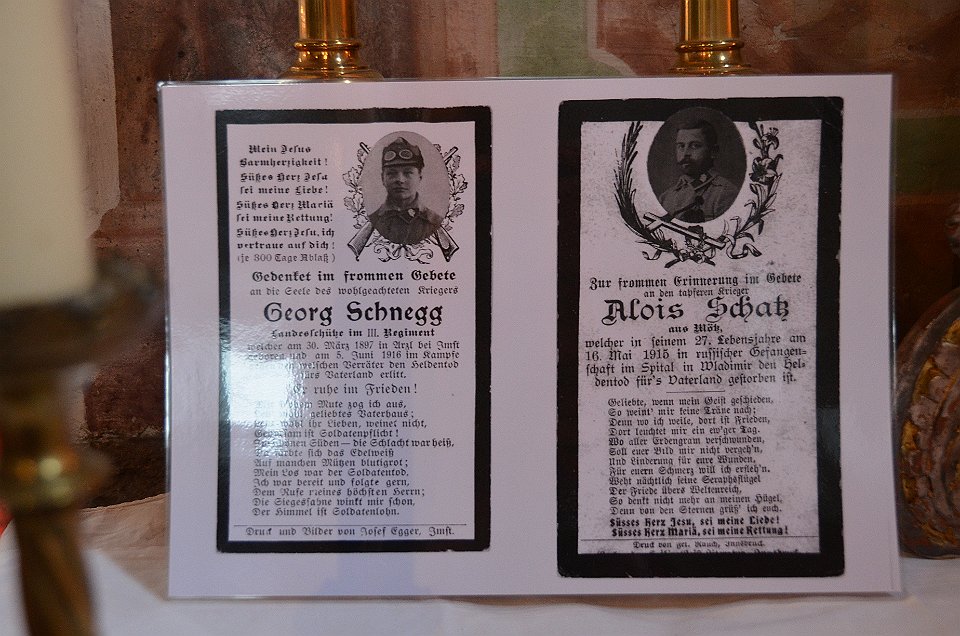 Mein Jesus
Barmherzigkeit!
Süßes Herz Jesu
sei meine Liebe!
Süßes Herz Mariä
sei meine Rettung!
Süßes Herz Jesu, ich
vertraue auf dich!
(je 300 Tage Ablaß)
Gedenket im frommen Gebete
an die Seele des wohlgeachteten Kriegers
Georg Schnegg
Landesschütze im III. Regiment
welcher am 30. März 1897 in Arzl bei Imst
geboren und am 5. Juni 1916 im Kampfe
welschen Verräter den Heldentod
fürs Vaterland erlitt.
Er ruhe im Frieden!
Mute zog ich aus,
geliebtes Vaterhaus;
wohl ihr Lieben, weinet nicht,
ist Soldatenpflicht!
Süden — die Schlacht war heiß,
färbte sich das Edelweiß
Auf manchen Mützen blutigrot;
Mein Los war der Soldatentod,
Ich war bereit und folgte gern,
Dem Rufe meines höchsten Herrn;
Die Siegesfahne winkt mir schon,
Der Himmel ist Soldatenlohn.
Druck und Bilder von Josef Egger, Imst.
Zur frommen Erinnerung im Gebete
an den tapferen Krieger
Alois Schatz
aus Mötz,
welcher in seinem 27. Lebensjahre am
16. Mai 1915 in russischer Gefangen-
schaft im Spital in Wladimir den Hel-
dentod für's Vaterland gestorben ist.
Geliebte, wenn mein Geist geschieden,
So weint' mir keine Träne nach;
Denn wo ich weile, dort ist Frieden,
Dort leuchtet mir ein ew'ger Tag.
Wo aller Erdengram verschwunden,
Soll euer Bild mir nicht vergeh'n,
Und Linderung für eure Wunden,
Für euern Schmerz will ich erfleh'n.
Weht nächtlich seine Seraphsflügel
Der Friede übers Weltenreich,
So denkt nicht mehr an meinen Hügel,
Denn von den Sternen grüß' ich euch.
Süsses Herz Jesu, sei meine Liebe!
Süsses Herz Mariä, sei meine Rettung!
Druck von Fel. Rauch, Innsbruck.